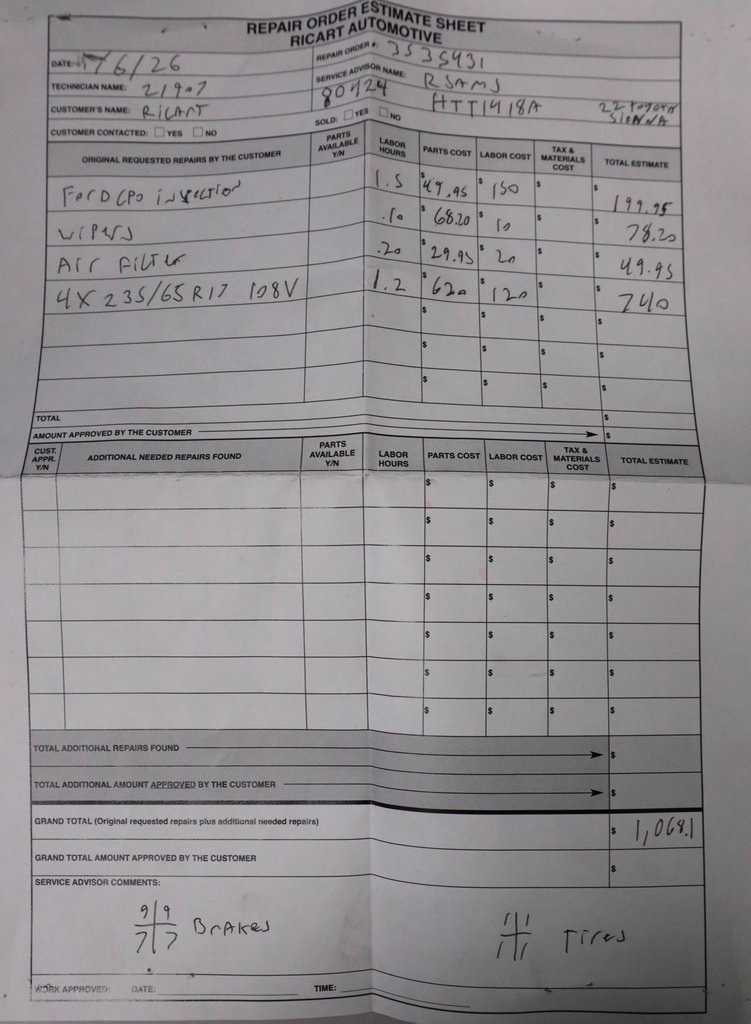 REPAIR ORDER ESTIMATE SHEET
RICART AUTOMOTIVE
DATE: 1/6/26 REPAIR ORDER #: 3535431
TECHNICIAN NAME: 21907 SERVICE ADVISOR NAME: RSAMS
CUSTOMER'S NAME: RICART 80424 HTT1418A 22 TOYOTA SIENNA
CUSTOMER CONTACTED: YES NO SOLD: YES NO
ORIGINAL REQUESTED REPAIRS BY THE CUSTOMER PARTS AVAILABLE Y/N LABOR HOURS PARTS COST LABOR COST TAX & MATERIALS COST TOTAL ESTIMATE
FORD CPO INSPECTION 1.5 $ 49.95 $ 150 $ $ 199.95
WIPERS .10 $ 68.20 $ 10 $ $ 78.20
AIR FILTER .20 $ 29.95 $ 20 $ $ 49.95
4X 235/65R17 108V 1.2 $ 620 $ 120 $ $ 740
$ $ $ $
$ $ $ $
$ $ $ $
TOTAL $
AMOUNT APPROVED BY THE CUSTOMER $
CUST. APPR. Y/N ADDITIONAL NEEDED REPAIRS FOUND PARTS AVAILABLE Y/N LABOR HOURS PARTS COST LABOR COST TAX & MATERIALS COST TOTAL ESTIMATE
$ $ $ $
$ $ $ $
$ $ $ $
$ $ $ $
$ $ $ $
$ $ $ $
$ $ $ $
TOTAL ADDITIONAL REPAIRS FOUND $
TOTAL ADDITIONAL AMOUNT APPROVED BY THE CUSTOMER $
GRAND TOTAL (Original requested repairs plus additional needed repairs) $ 1,068.1
GRAND TOTAL AMOUNT APPROVED BY THE CUSTOMER $
SERVICE ADVISOR COMMENTS:
9 9 11 11
7 7 BRAKES 11 11 TIRES
WORK APPROVED: DATE: TIME: